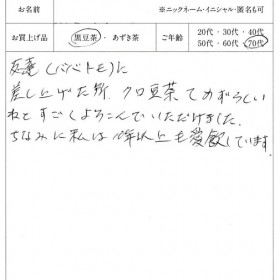 お名前
※ニックネーム・イニシャル・匿名も可
お買上げ品
黒豆茶・あずき茶
ご年齢
20代・30代・40代
50代・60代・70代
友達(ババトモ)に
差し上げた所、クロ豆茶てめずらしい
ねとすごくよろこんでいただけました。
ちなみに私は10年以上も愛飲しています。